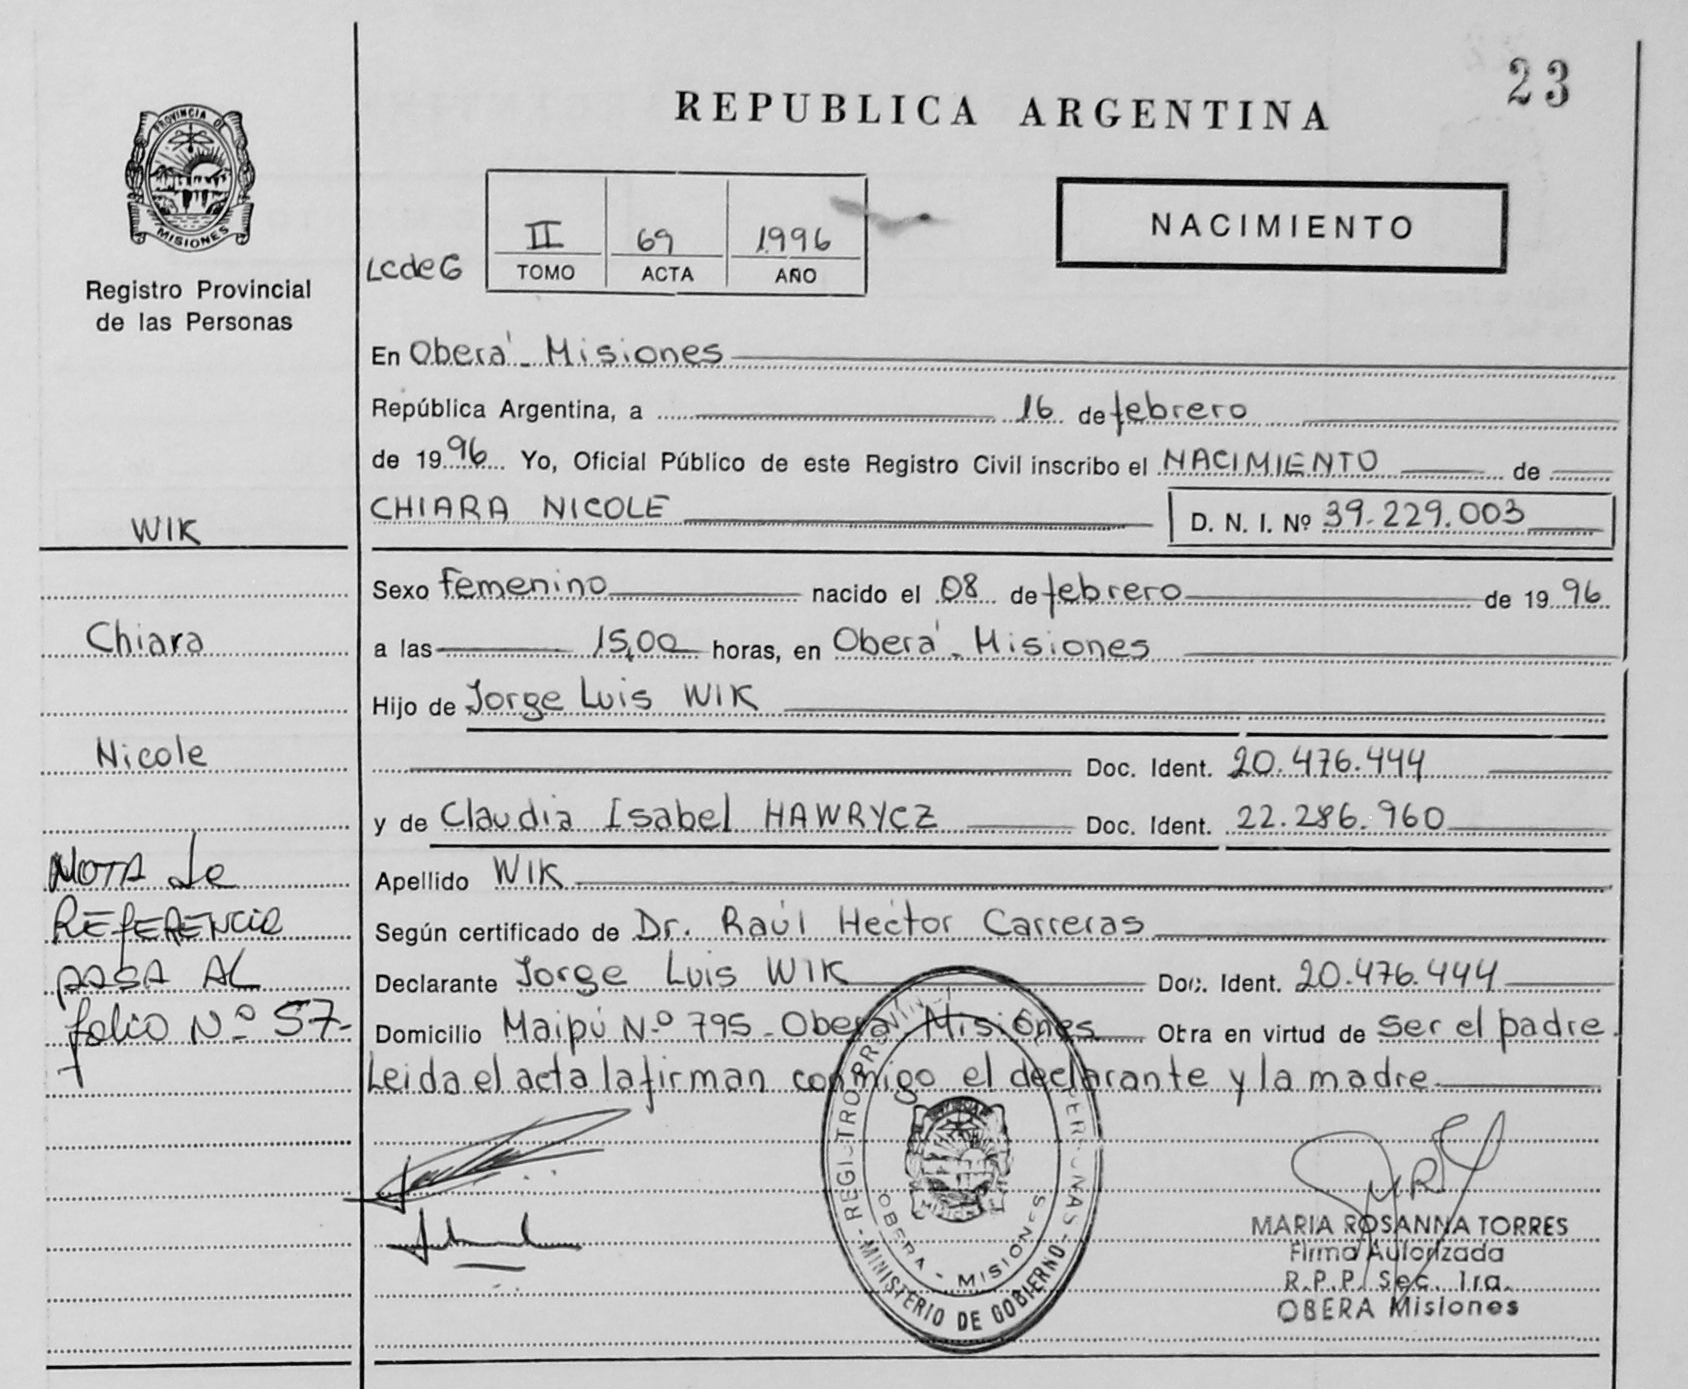 23
REPUBLICA ARGENTINA
PROVINCIA DE
MISIONES
Registro Provincial
de las Personas
LcdeG
II 69 1996
TOMO ACTA AÑO
NACIMIENTO
En Oberá - Misiones
República Argentina, a 16 de febrero
de 1996 Yo, Oficial Público de este Registro Civil inscribo el NACIMIENTO de
CHIARA NICOLE D. N. I. Nº 39.229.003
WIK
Sexo femenino nacido el 08 de febrero de 1996
Chiara
a las 15,00 horas, en Oberá - Misiones
Hijo de Jorge Luis WIK
Nicole
Doc. Ident. 20.476.444
y de Claudia Isabel HAWRYCZ Doc. Ident. 22.286.960
NOTA de
REFERENCIA
PASA AL
folio Nº 57-
Apellido WIK
Según certificado de Dr. Raúl Héctor Carreras
Declarante Jorge Luis WIK Doc. Ident. 20.476.444
Domicilio Maipú Nº 795 - Oberá Misiones Obra en virtud de ser el padre.
Leida el acta la firman conmigo el declarante y la madre
REGISTRO PROVINCI PERSONAS - MINISTERIO DE GOBIERNO -
OBERA - MISIONES
MARIA ROSANNA TORRES
Firma Autorizada
R.P.P. Sec. 1ra.
OBERA Misiones